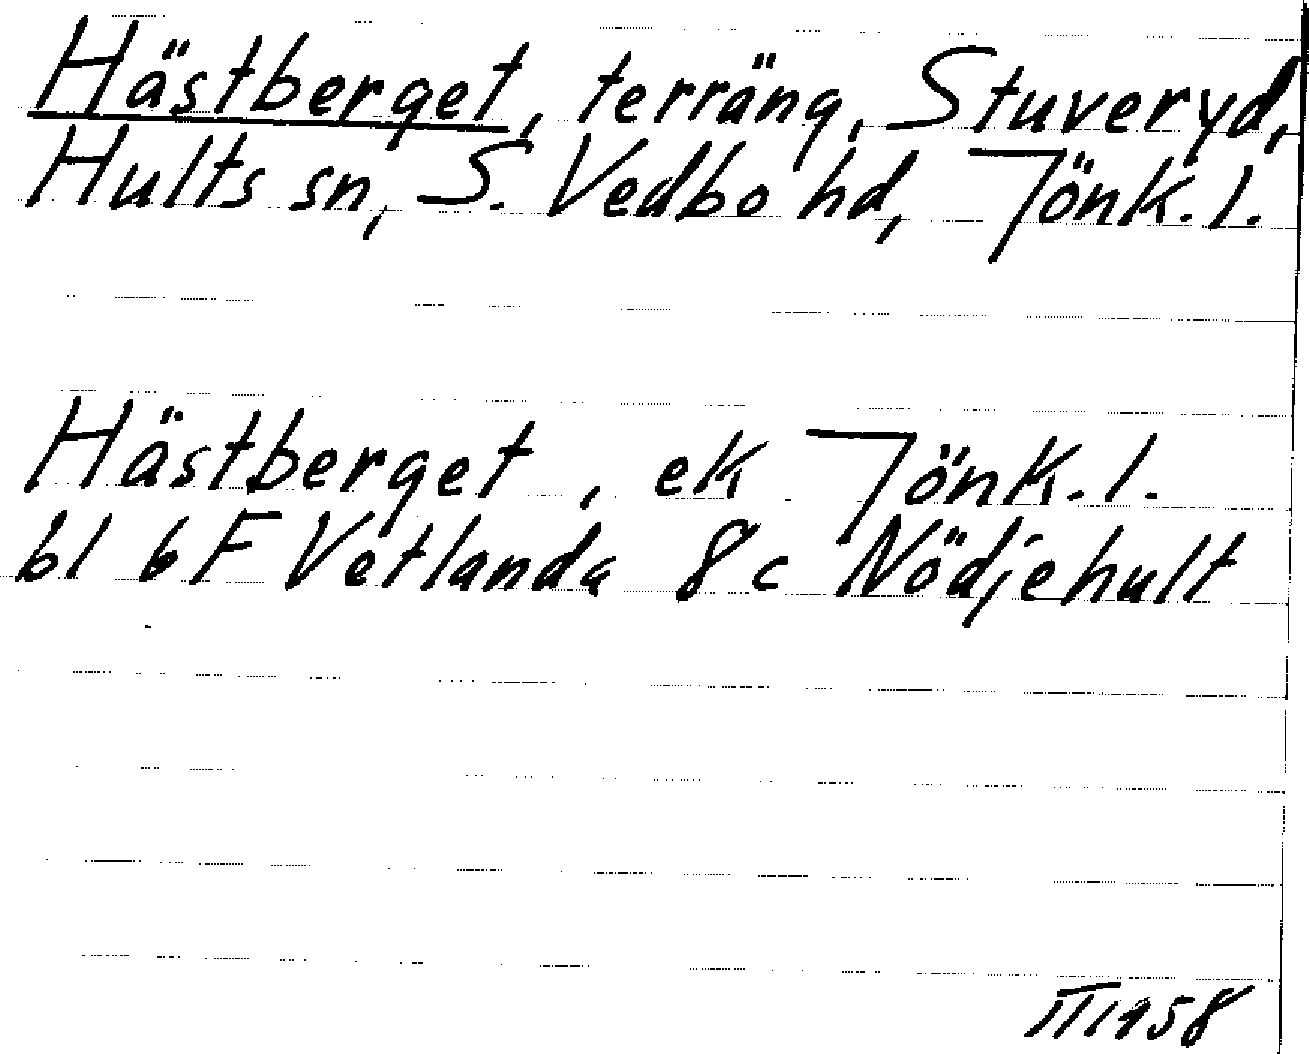 Hästberget, terräng, Stuveryd,
Hults sn, S. Vedbo hd, Jönk. l.
Hästberget, ek Jönk. l.
bl 6 F Vetlanda 8c Nödjehult